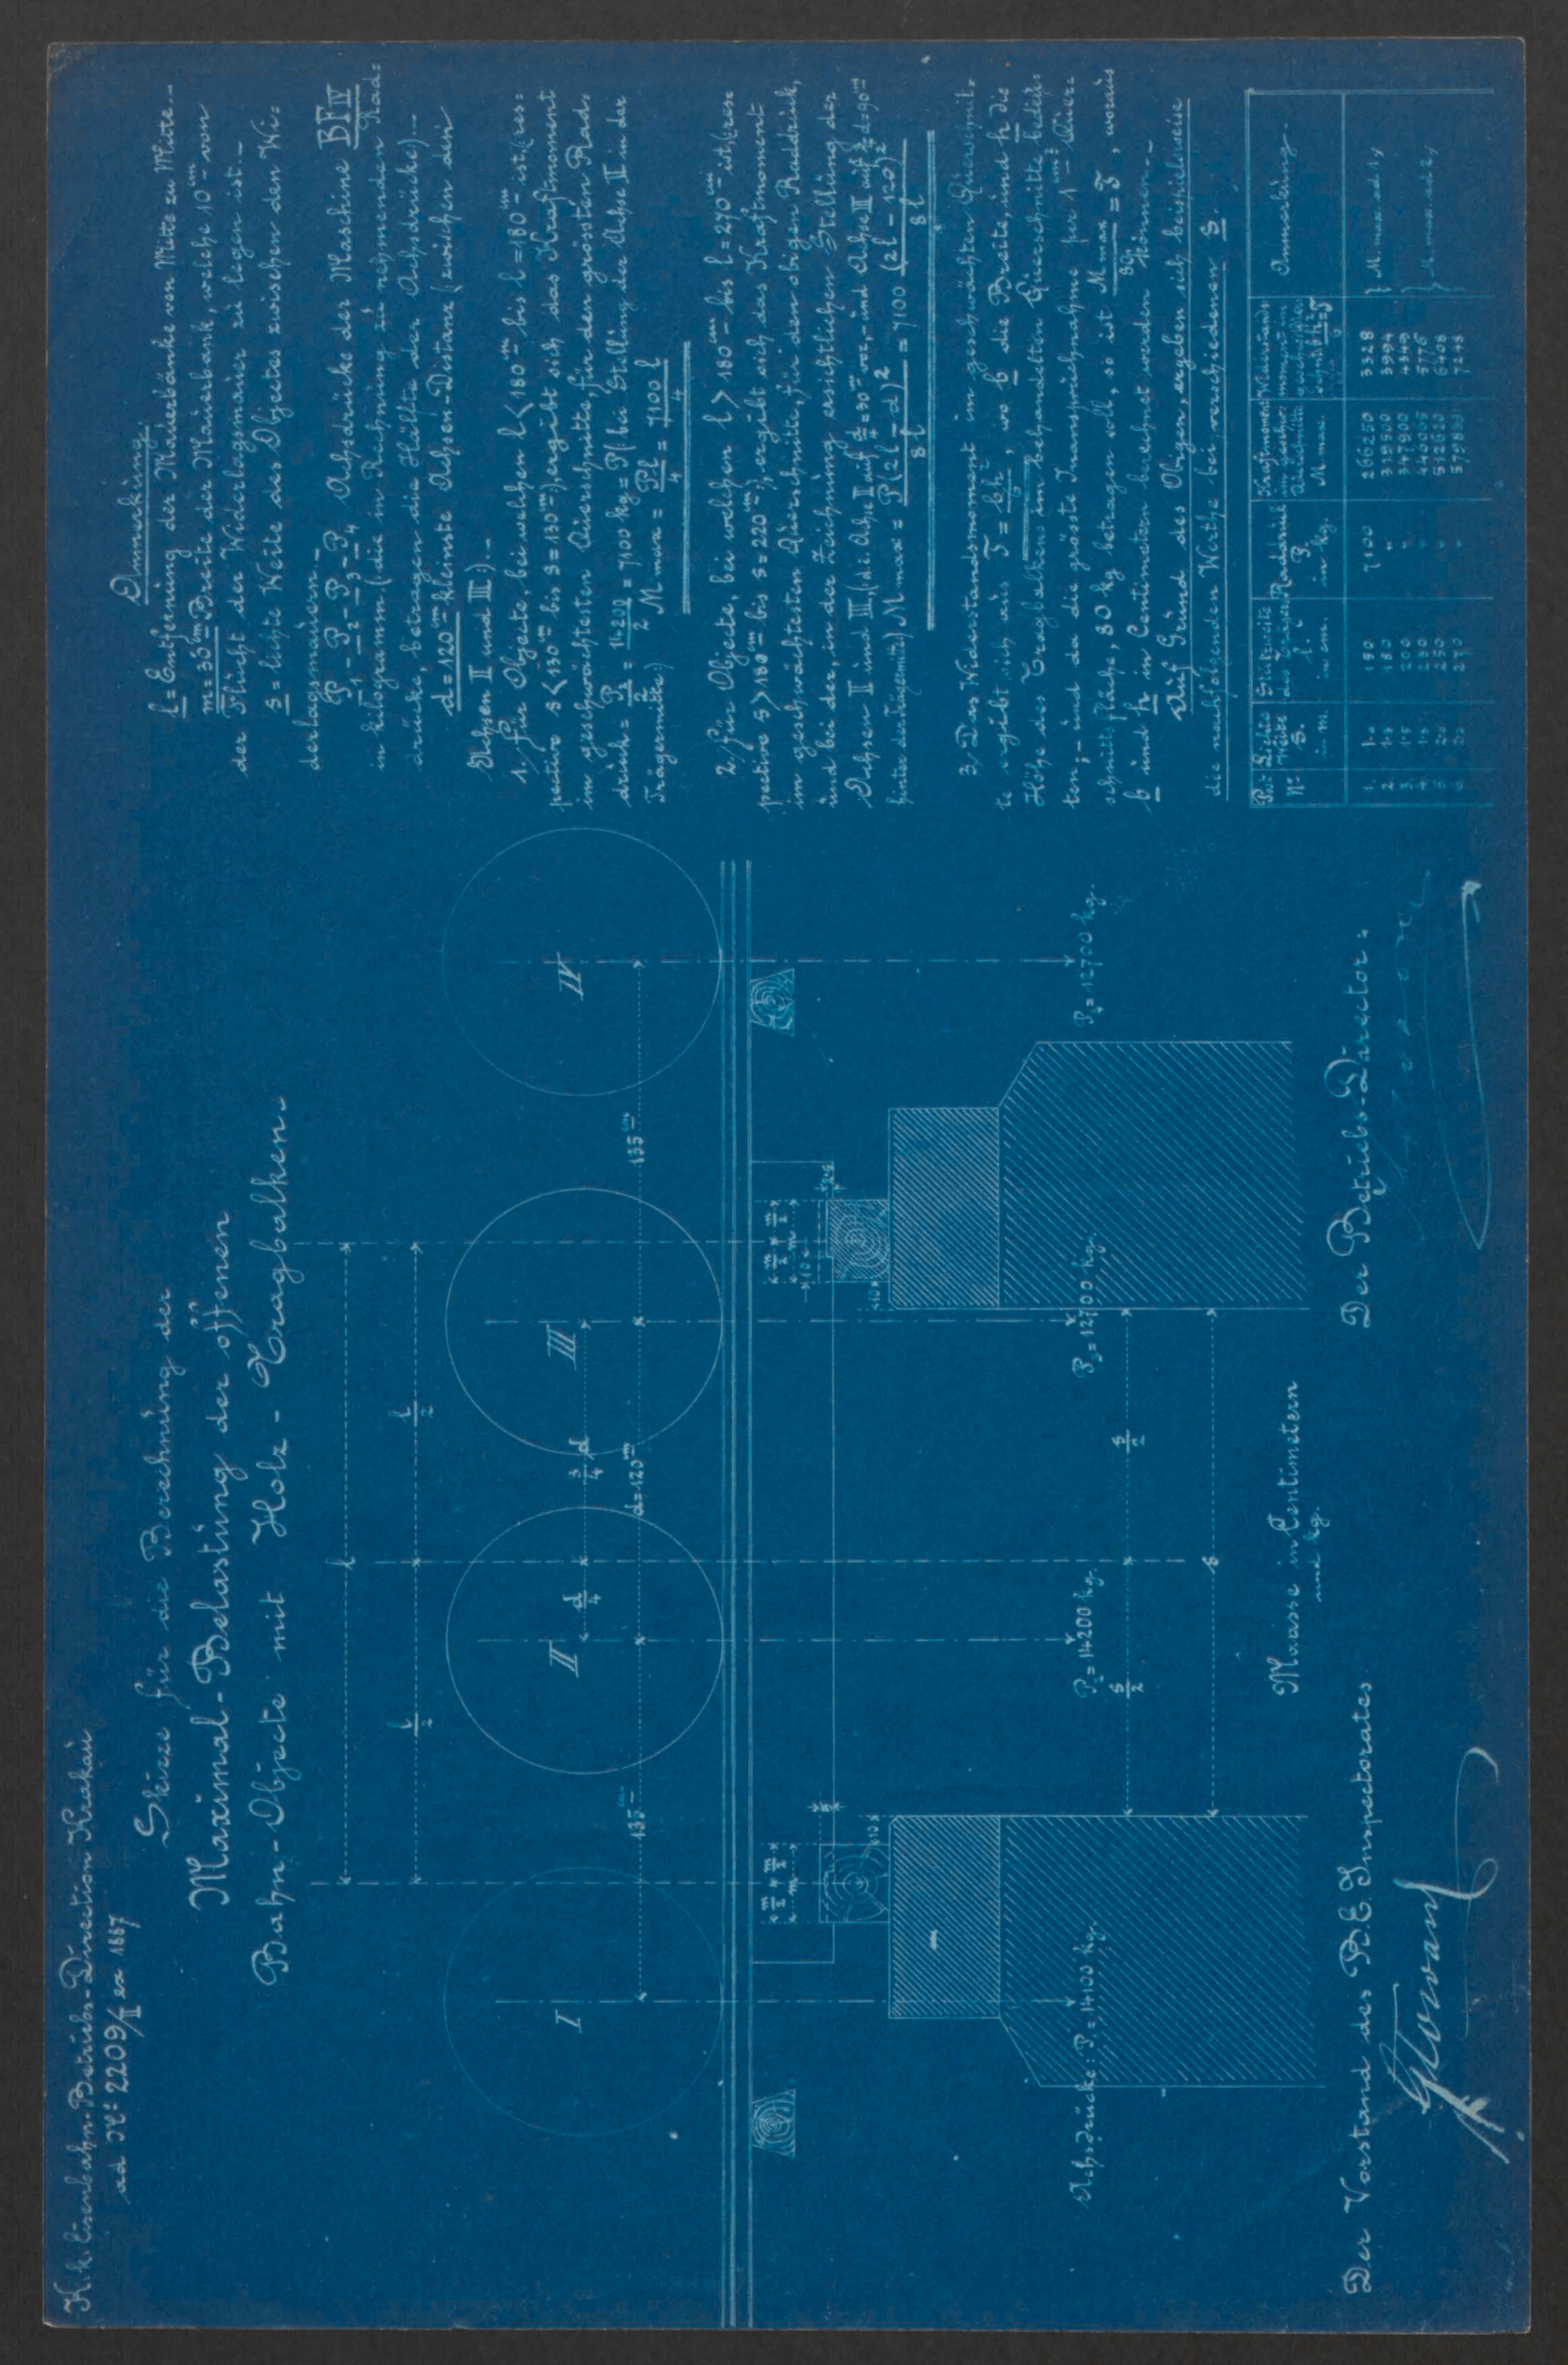 K. k. Eisenbahn-Betriebs-Direction Krakau
ad Nº 2209/II ex 1887
Skizze für die Berechnung der
Maximal-Belastung der offenen
Bahn-Objecte mit Holz-Tragbalken.
l
l/2 l/2
I II III IV
d/4 3/4 d
135 cm d=120 cm 135 cm
m/2 m/2
m
10
m/2 m/2
m
10
10
Achsdrücke: P₁=14100 kg. P₂=14200 kg. P₃=12700 kg. P₄=12700 kg.
s/2 s/2
s
Maasse in Centimetern
und kg.
Der Vorstand des B. E. Inspectorates
Der Betriebs-Director:
Anmerkung.
l = Entfernung der Mauerbänke von Mitte zu Mitte.–
m = 30 cm Breite der Mauerbank, welche 10 cm von
der Flucht der Widerlagsmauer zu legen ist.–
s = lichte Weite des Objectes zwischen den Wi=
derlagsmauern.–
P₁ - P₂ - P₃ - P₄ Achsdrücke der Maschine BF IV
in kilogramm. (die in Rechnung zu nehmenden Rad=
drücke, betragen die Hälfte der Achsdrücke).–
d = 120 cm kleinste Achsen-Distanz (zwischen den
Achsen II und III).–
1. für Objecte, bei welchen l < 180 cm bis l = 180 cm ist, (res=
pective s < 130 cm bis s = 130 cm), ergibt sich das Kraftmoment
im geschwächten Querschnitte, für den grössten Rad=
druck = P₂/2 = 14200/2 = 7100 kg = P (bei Stellung der Achse II in der
Trägermitte) M max = Pl/4 = 7100 l/4
2. für Objecte, bei welchen l > 180 cm bis l = 270 cm ist, (res=
pective s > 130 cm bis s = 220 cm), ergibt sich das Kraftmoment
im geschwächten Querschnitte, für den obigen Raddruck,
und bei der, in der Zeichnung ersichtlichen Stellung der
Achsen II und III, (die Achse II auf d/4 = 30 cm vor,- und Achse III auf 3/4 d = 90 cm
hinter der Trägermitte) M max = P (2l - d)²/8l = 7100 (2l - 120)²/8l
3. Das Widerstandsmoment im geschwächten Querschnit=
te ergibt sich aus S = bh²/6, wo b die Breite, und h die
Höhe des Tragbalkens im behandelten Querschnitte bedeu=
ten,- und da die grösste Inanspruchnahme per 1 cm² Quer=
schnittsfläche, 80 kg betragen soll, so ist M max/80 = S, woraus
b und h in Centimetern berechnet werden können.–
Auf Grund des Obigen, ergeben sich beispielsweise
die nachfolgenden Werthe bei verschiedenen s.
Post Nº Lichte Weite s. in m. Stützweite des Trägers l in cm. Raddruck P. in kg. Kraftmoment im geschw. Querschnitte M. max. Widerstandsmoment Anmerkung.
1. 1·0 150 7100 266250 3328 } M. max. ad 1./
2. 1·3 180 " 319500 3994
3. 1·5 200 " 347900 4349 } M. max. ad 2./